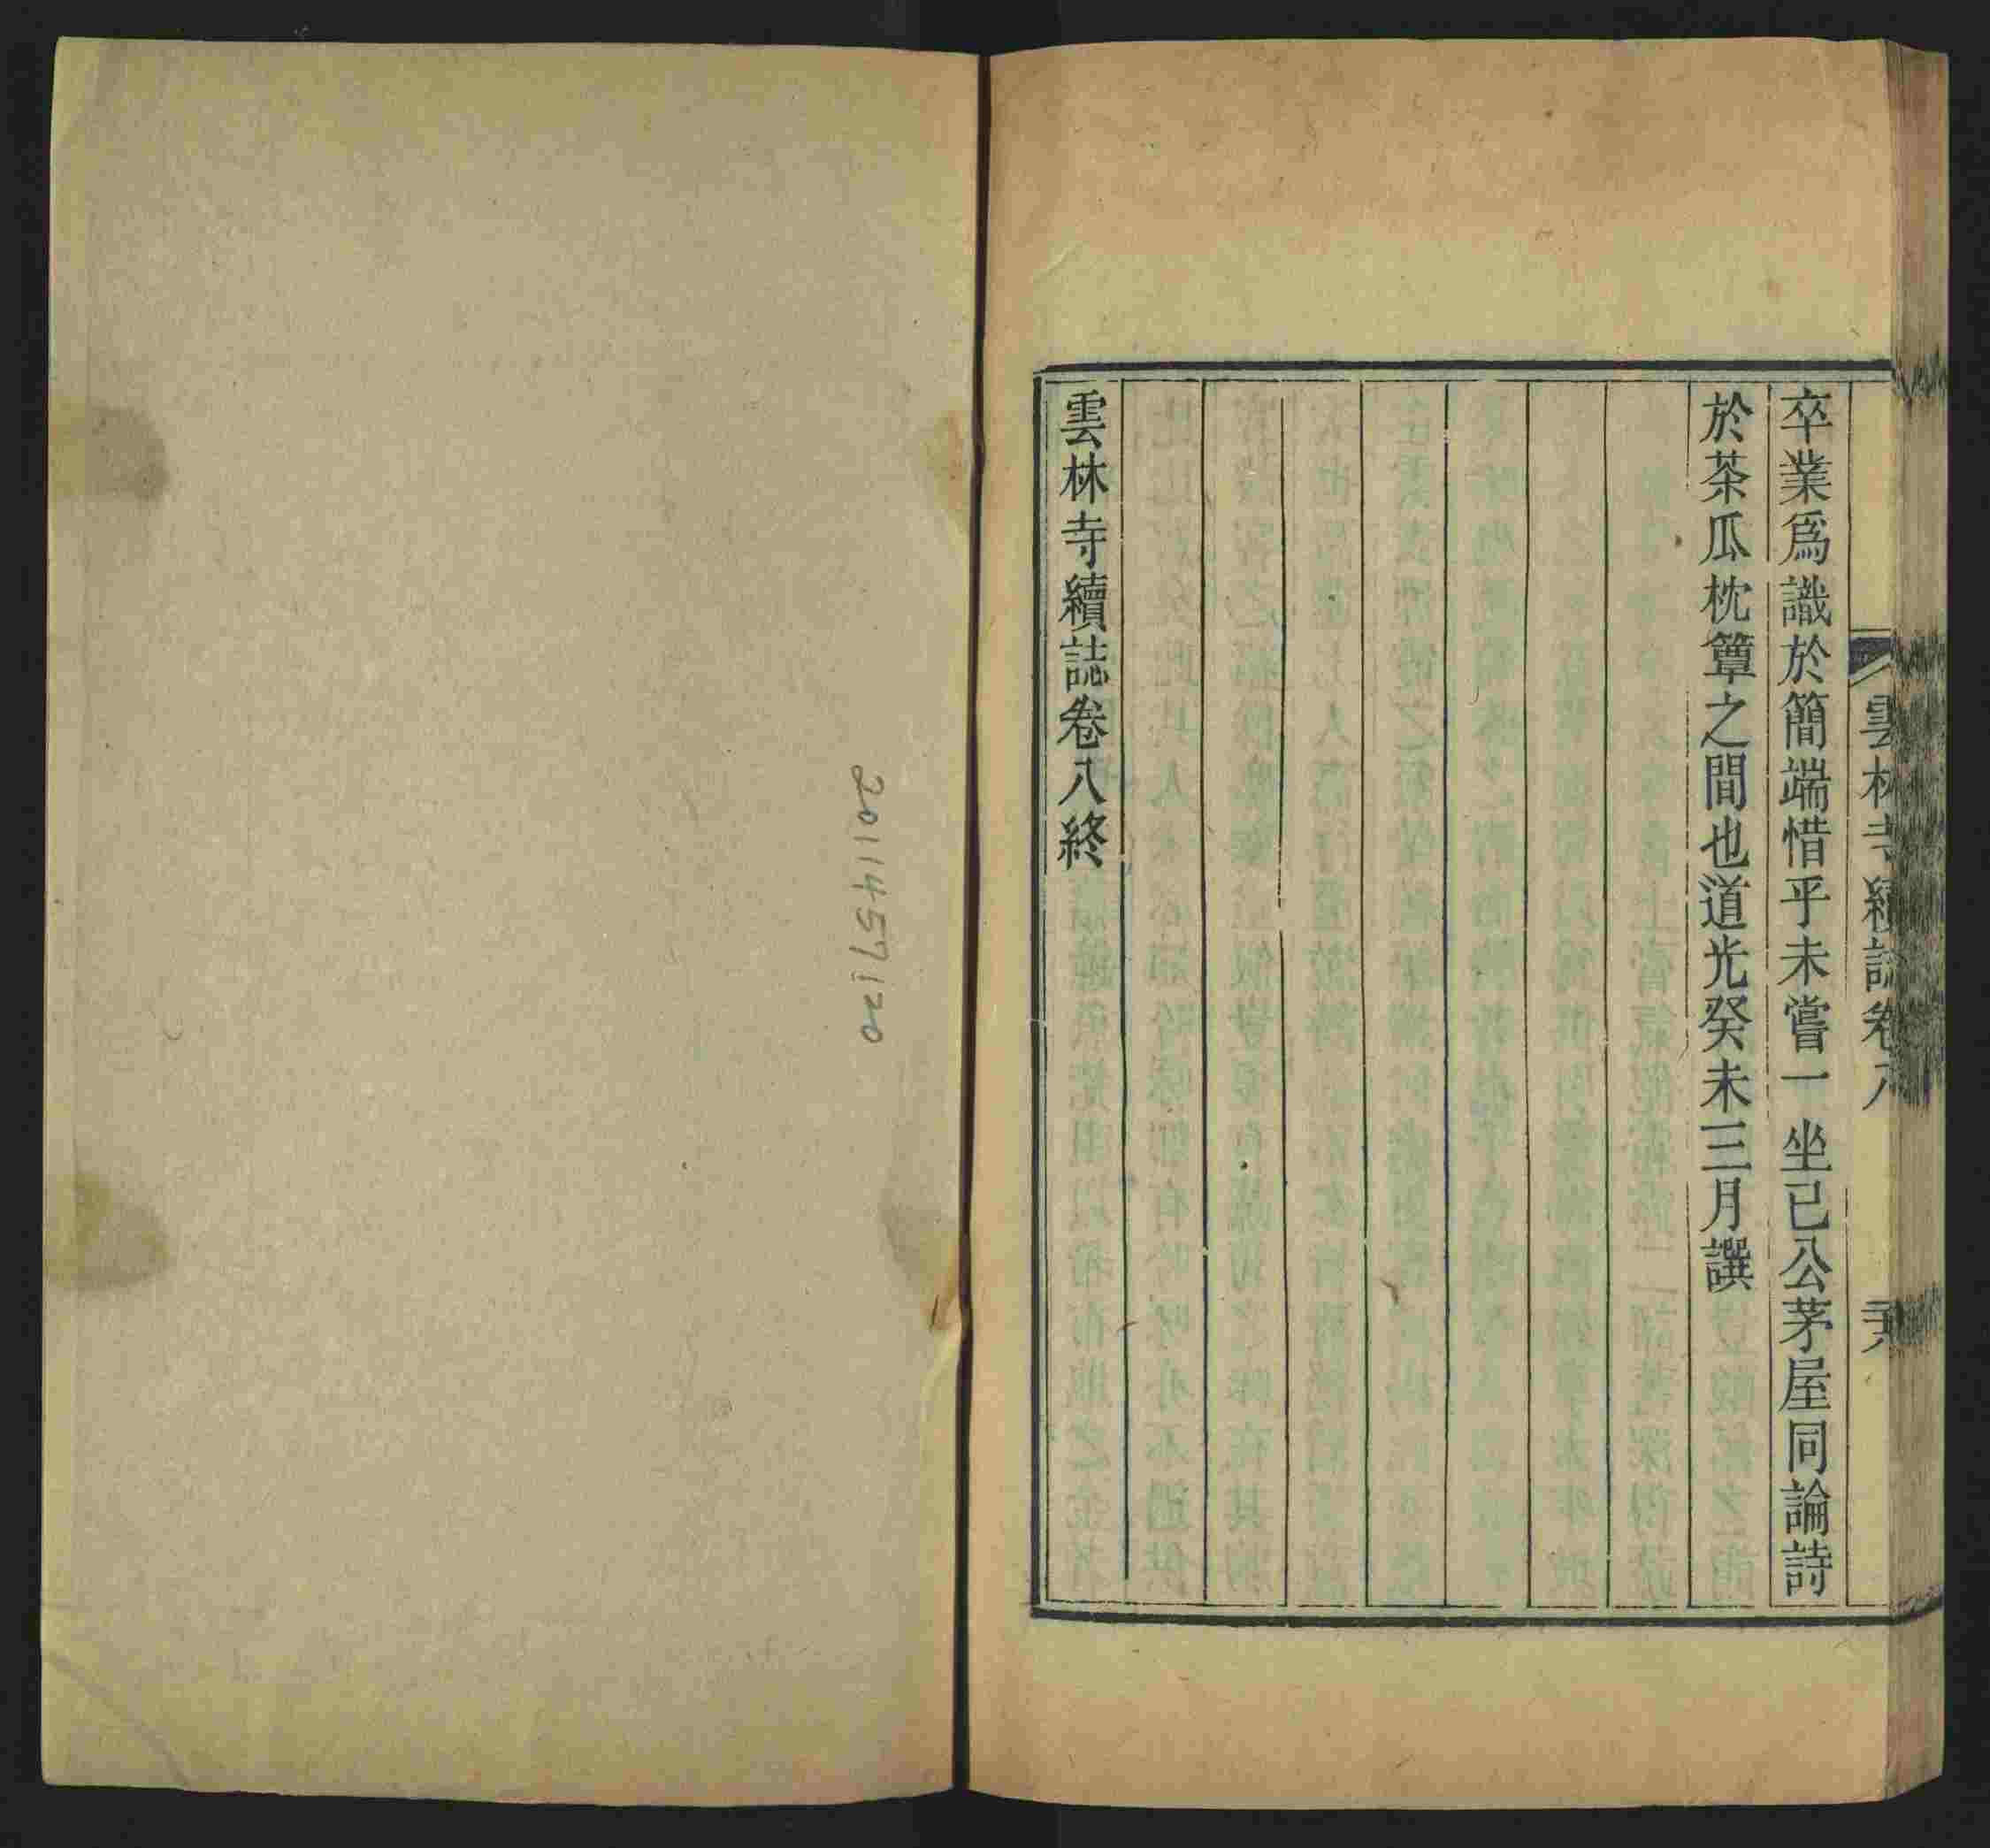 雲林寺續誌卷八
卒業爲識於簡端惜乎未嘗一坐已公茅屋同論詩
於茶瓜枕簟之間也道光癸未三月譔
雲林寺續誌卷八終
2011457120